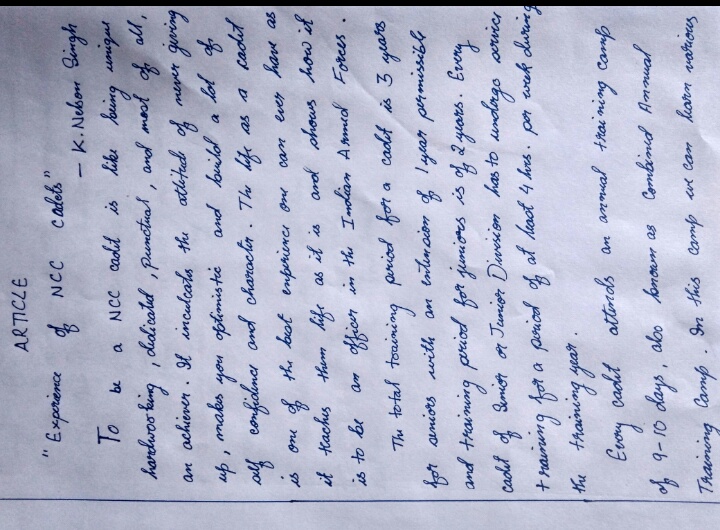 ARTICLE
"Experience of NCC Cadets"
- K. Nelson Singh
To be a NCC cadet is like being unique
hardworking, dedicated, punctual, and most of all,
an achiever. It inculcates the attitude of never giving
up, makes you optimistic and build a lot of
self confidence and character. The life as a cadet
is one of the best experience one can ever have as
it teaches them life as it is and shows how it
is to be an officer in the Indian Armed Forces.
The total training period for a cadet is 3 years
for seniors with an extension of 1 year permissible
and training period for juniors is of 2 years. Every
cadet of Senior or Junior Division has to undergo service
training for a period of at least 4 hrs. per week during
the training year.
Every cadet attends an annual training camp
of 9-10 days, also known as Combined Annual
Training Camp. In this camp we can learn various